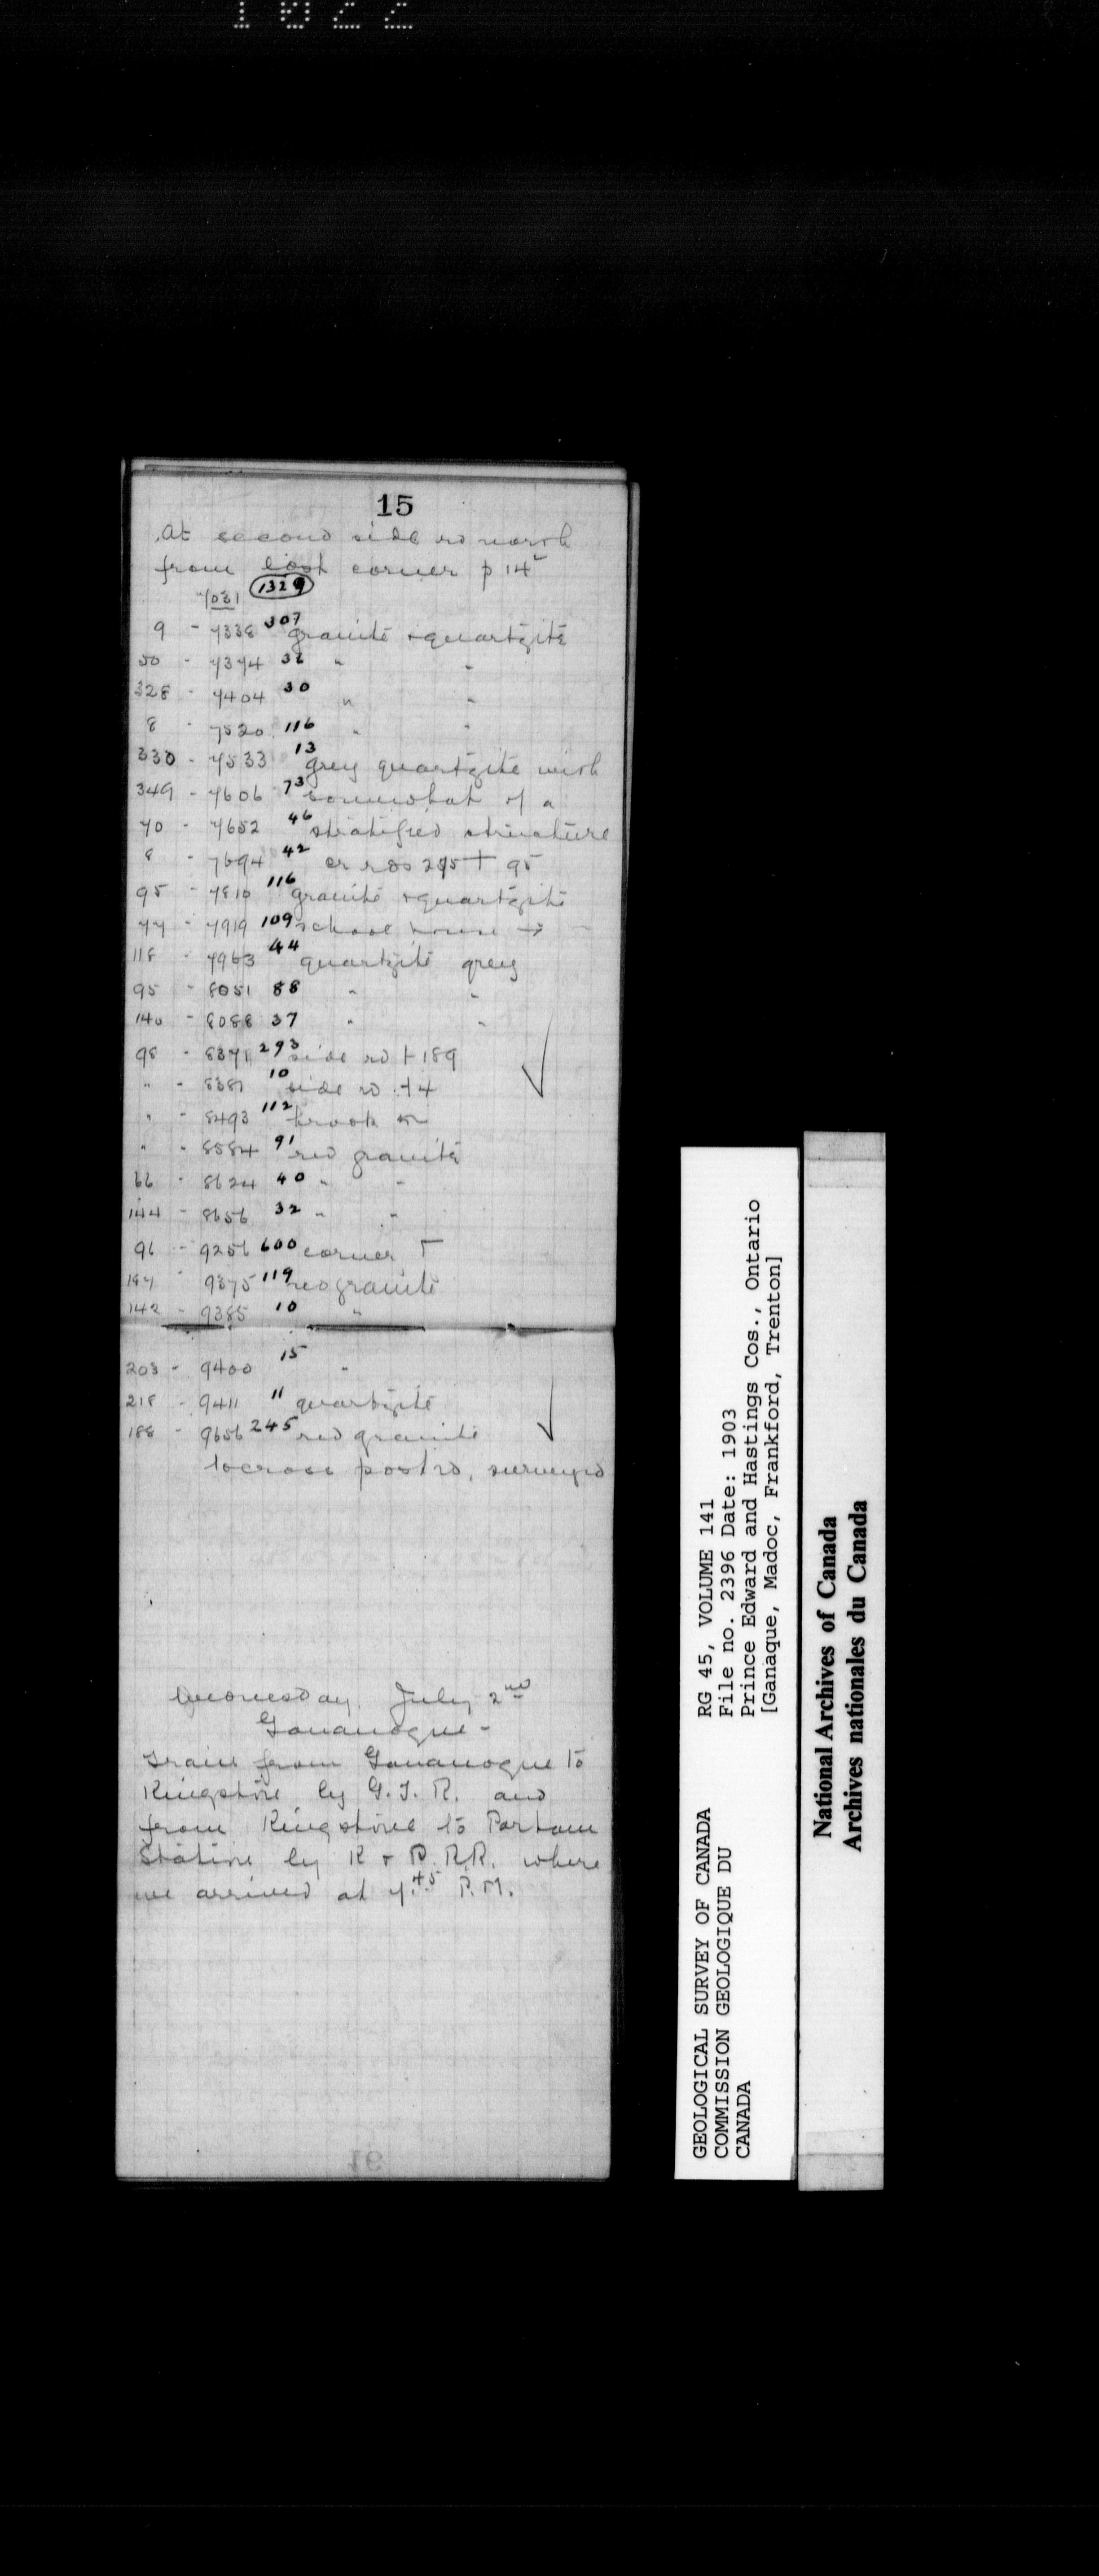 1022
15
At second side rd north
from last corner p 14
7031 1329
9 - 7338 307 granite + quartzite
50 - 7374 36 " "
328 - 7404 30 " "
8 - 7520 116 " "
330 - 7533 13 grey quartzite with
349 - 7606 73 somewhat of a
70 - 7652 46 stratified structure
8 - 7694 42 cr rds 275 + 95
95 - 7810 116 granite + quartzite
77 - 7919 109 school house →
118 - 7963 44 quartzite grey
95 - 8051 88 " "
140 - 8088 37 " "
98 - 8371 293 side rd + 189
" - 8381 10 side rd + 4
" - 8493 112 brook
" - 8584 91 red granite
66 - 8624 40 " "
144 - 8656 32 " "
96 - 9256 600 corner
187 - 9375 119 red granite
142 - 9385 10 "
203 - 9400 15 "
218 - 9411 11 quartzite
188 - 9656 245 red granite
to cross post rd, surveyed
Wednesday, July 2nd
Gananoque -
Train from Gananoque to
Kingston by G.T.R. and
from Kingston to Parham
Station by K + P. R.R. where
we arrived at 7.45 P.M.
16
GEOLOGICAL SURVEY OF CANADA
COMMISSION GEOLOGIQUE DU
CANADA
RG 45, VOLUME 141
File no. 2396 Date: 1903
Prince Edward and Hastings Cos., Ontario
[Ganaque, Madoc, Frankford, Trenton]
National Archives of Canada
Archives nationales du Canada